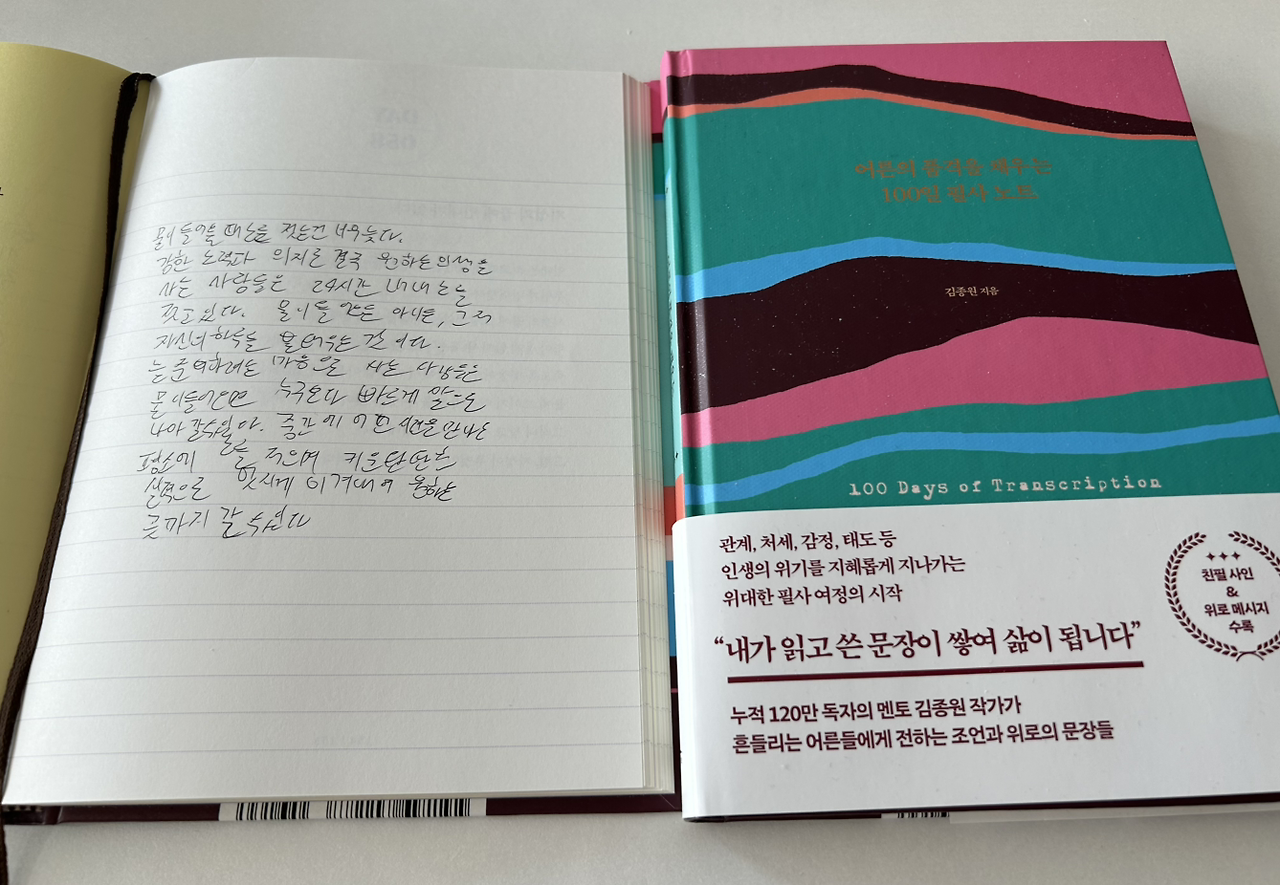 물이 들어올 때 노를 젓는건 너무 늦다.
강한 노력과 의지로 결국 원하는 인생을
사는 사람들은 24시간 내내 노를
젓고 있다. 물이 들 만든 아니든, 그저
자신의 하루를 불태우는 것이다.
늘 준비하려는 마음으로 사는 사람들은
물이 들어오면 누구보다 빠르게 앞으로
나아갈 수 있다. 중간에 어떤 만나도
평소에 노를 저으며 키운 단단한
실력으로 멋지게 이겨내어 원하는
곳까지 갈 수 있다
어른의 품격을 채우는
100일 필사 노트
김종원 지음
100 Days of Transcription
관계, 처세, 감정, 태도 등
인생의 위기를 지혜롭게 지나가는
위대한 필사 여정의 시작
“내가 읽고 쓴 문장이 쌓여 삶이 됩니다”
누적 120만 독자의 멘토 김종원 작가가
흔들리는 어른들에게 전하는 조언과 위로의 문장들
친필 사인
&
위로 메시지
수록